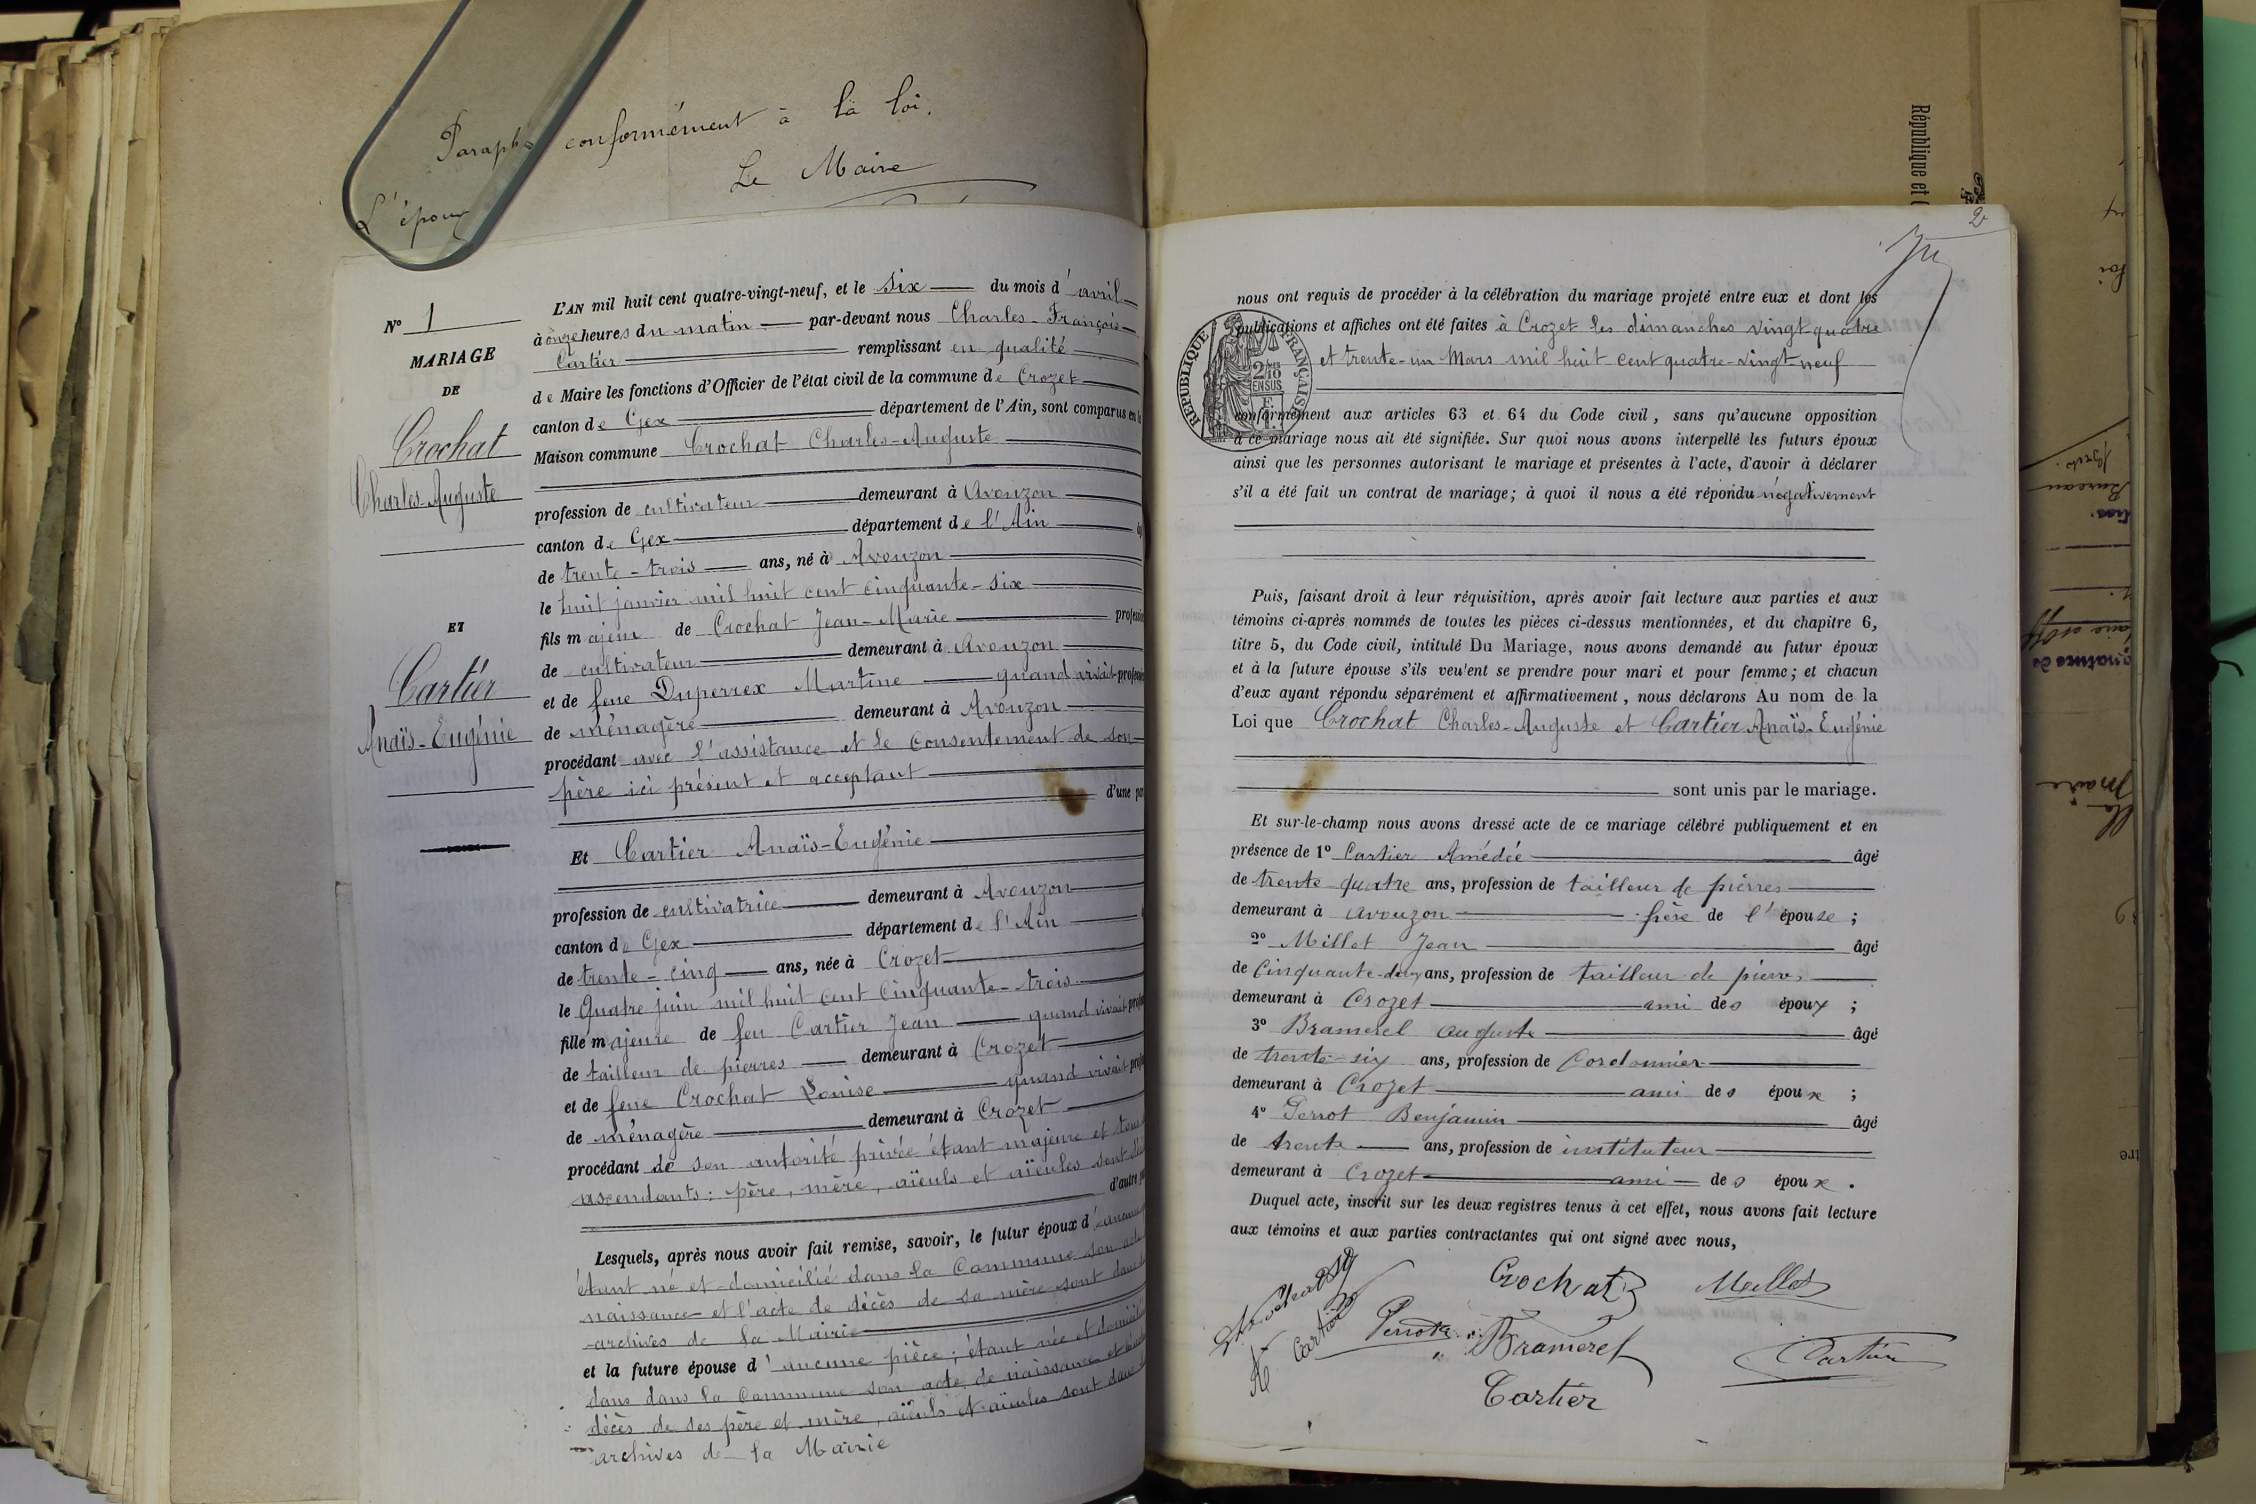 Paraphé conformément à la loi.
Le Maire
L'époux
N° 1
MARIAGE
DE
Crochat
Charles-Auguste
ET
Cartier
Anaïs-Eugénie
L'AN mil huit cent quatre-vingt-neuf, et le six du mois d'avril
à onze heures du matin par-devant nous Charles-François
Cartier remplissant en qualité
de Maire les fonctions d'Officier de l'état civil de la commune de Crozet
canton de Gex département de l'Ain, sont comparus en la
Maison commune Crochat Charles-Auguste
profession de cultivateur demeurant à Avouzon
canton de Gex département de l'Ain
de trente-trois ans, né à Avouzon
le huit janvier mil huit cent cinquante-six
fils majeur de Crochat Jean-Marie profession
de cultivateur demeurant à Avouzon
et de feue Duperrex Martine quand vivait profession
de ménagère demeurant à Avouzon
procédant avec l'assistance et le consentement de son
père ici présent et acceptant
d'une part
Et Cartier Anaïs-Eugénie
profession de cultivatrice demeurant à Avouzon
canton de Gex département de l'Ain
de trente-cinq ans, née à Crozet
le Quatre juin mil huit cent cinquante-trois
fille majeure de feu Cartier Jean quand vivait
de tailleur de pierres demeurant à Crozet
et de feue Crochat Louise quand vivait
de ménagère demeurant à Crozet
procédant de son autorité privée étant majeure et
ascendants: père, mère, aïeuls et aïeules sont
d'autre
Lesquels, après nous avoir fait remise, savoir, le futur époux d'aucune
étant né et domicilié dans la Commune son acte
naissance et l'acte de décès de sa mère sont dans
archives de la Mairie
et la future épouse d'aucune pièce; étant née et
dans dans la Commune son acte de naissance et
décès de ses père et mère, aïeuls et aïeules sont dans
archives de la Mairie
République et
2
nous ont requis de procéder à la célébration du mariage projeté entre eux et dont les
publications et affiches ont été faites à Crozet les dimanches vingt quatre
et trente-un Mars mil huit cent quatre-vingt-neuf
RÉPUBLIQUE FRANÇAISE
conformément aux articles 63 et 64 du Code civil, sans qu'aucune opposition
à ce mariage nous ait été signifiée. Sur quoi nous avons interpellé les futurs époux
ainsi que les personnes autorisant le mariage et présentes à l'acte, d'avoir à déclarer
s'il a été fait un contrat de mariage; à quoi il nous a été répondu négativement
Puis, faisant droit à leur réquisition, après avoir fait lecture aux parties et aux
témoins ci-après nommés de toutes les pièces ci-dessus mentionnées, et du chapitre 6,
titre 5, du Code civil, intitulé Du Mariage, nous avons demandé au futur époux
et à la future épouse s'ils veulent se prendre pour mari et pour femme; et chacun
d'eux ayant répondu séparément et affirmativement, nous déclarons Au nom de la
Loi que Crochat Charles-Auguste et Cartier Anaïs Eugénie
sont unis par le mariage.
Et sur-le-champ nous avons dressé acte de ce mariage célébré publiquement et en
présence de 1° Cartier Amédée âgé
de trente quatre ans, profession de tailleur de pierres
demeurant à Avouzon frère de l'épouse;
2° Millet Jean âgé
de cinquante-deux ans, profession de tailleur de pierres
demeurant à Crozet ami des époux;
3° Brameret Auguste âgé
de trente-six ans, profession de Cordonnier
demeurant à Crozet ami des époux;
4° Perrot Benjamin âgé
de trente ans, profession de instituteur
demeurant à Crozet ami des époux.
Duquel acte, inscrit sur les deux registres tenus à cet effet, nous avons fait lecture
aux témoins et aux parties contractantes qui ont signé avec nous,
Crochat Millet
Cartier Perrot Brameret
Cartier Cartier